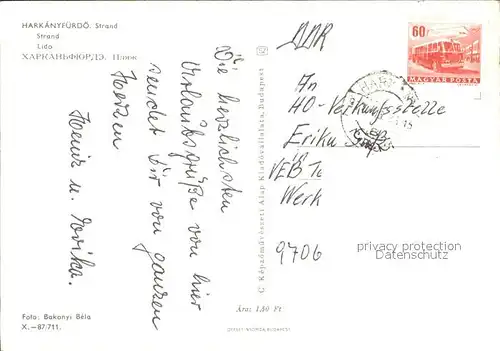 HARKÁNYFÜRDŐ. Strand
Strand
Lido
ХАРКАНЬФЮРДЭ. Пляж
Die herzlichsten
Urlaubsgrüße von hier
sendet Dir von ganzen
Herzen
Heinz u. Erika.
Foto: Bakonyi Béla
X.-87/711.
C Képzőművészeti Alap Kiadóvállalata, Budapest
Ára: 1.40 Ft
OFFSET-NYOMDA BUDAPEST
60f
MAGYAR POSTA
DDR
An
HO-Verkaufsstelle
Erika
VEB
Werk
9706
privacy protection
Datenschutz